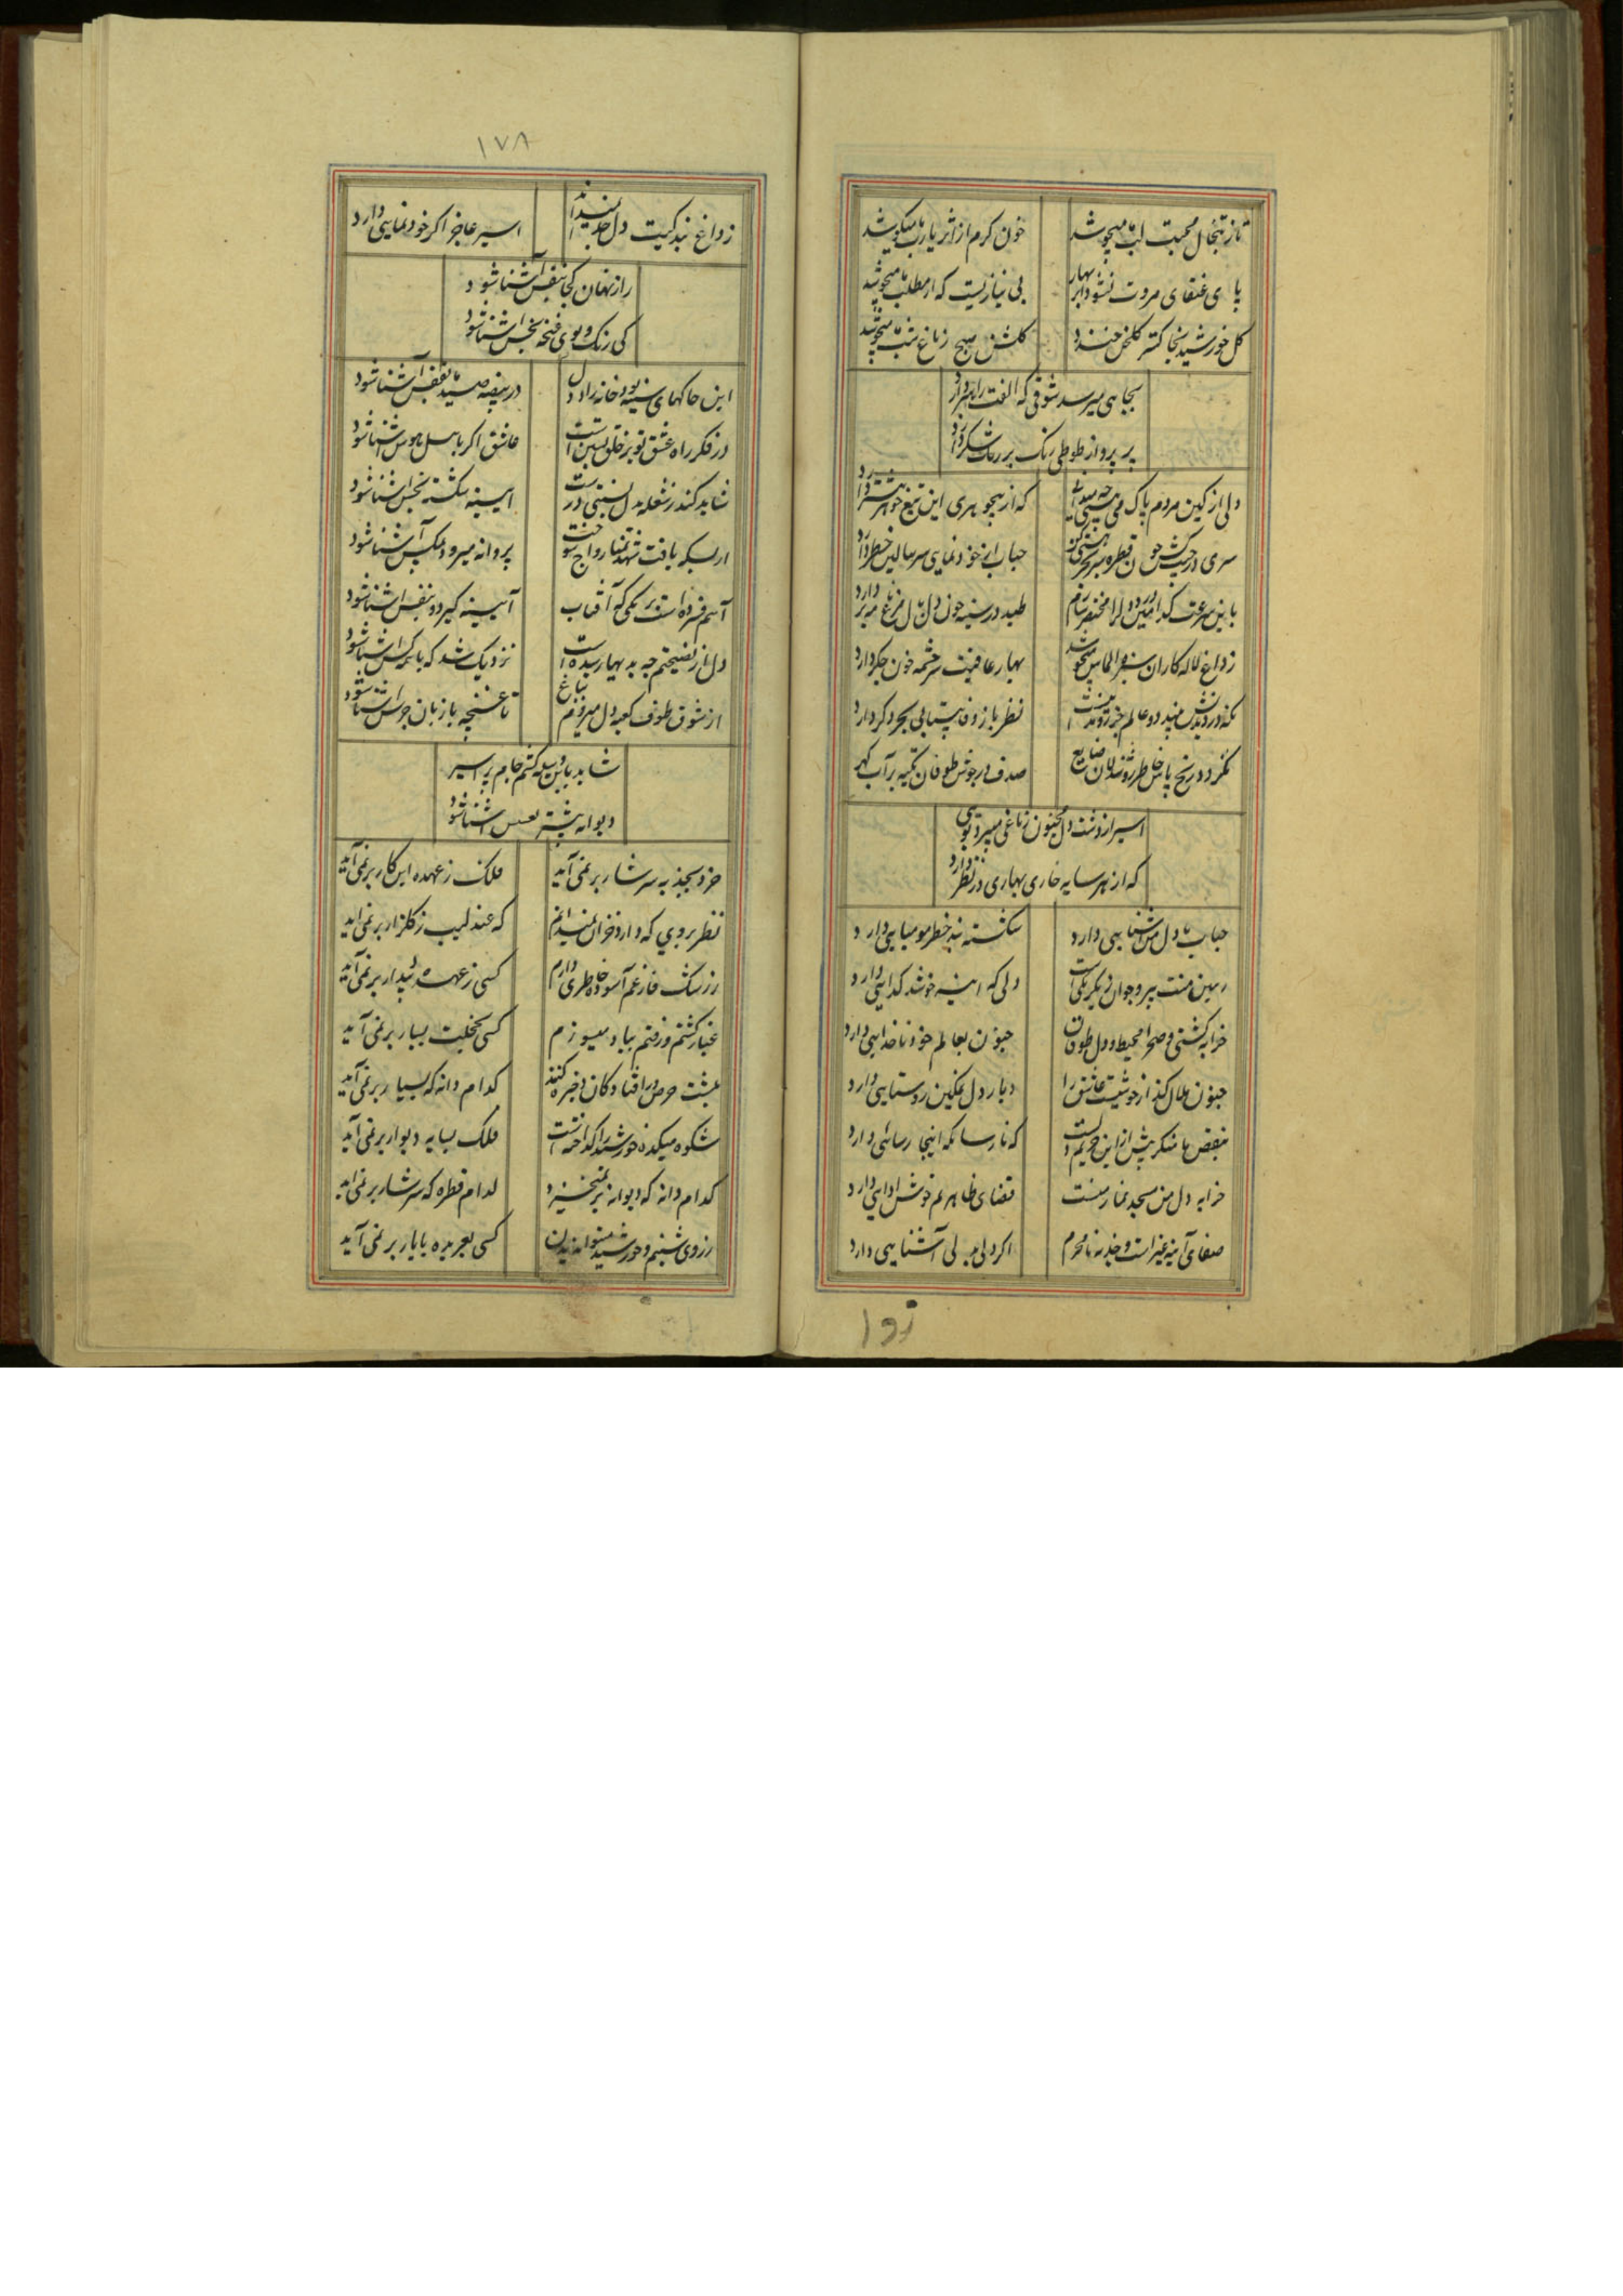 تاز تبخال محبت لب ما میجوشد
خون کرم از اثر یارب ما میکوشد
پای عنقای مروت نشود ابر بهار
بی نیازیست که از مطلب ما میجوشد
کل خورشید بخاکستر کلخن خندد
کلشن صبح ز باغ شب ما میجوشد
بجایی میرسد شوقی که الفت راهبر دارد
پر پرواز طوطی رنک بر رنک شکر دارد
دلی از کین مردم پاک
که از بیجوهری این تیغ جوهر بیشتر دارد
سری در جیب کش چون قطره
حباب از خودنمایی سر ببالین خطر دارد
باین سرعت کدامین درد دل را مختصر سازم
طپد در سینه چون دل
زداغ لاله کاران
بهار عافیت سرچشمه خون جکر دارد
نکه دزدیدنش
نظر باز وفا بیتابی
نکردد رنج پاس خاطر روشندلان ضایع
صدف در جوش طوفان تکیه بر آب کهر دارد
اسیر از دشت دل مجنون زباغی میبرد بویی
که از هر سایه خاری بهاری در نظر دارد
حباب با دل من آشنایی دارد
شکسته بند خطر مومیایی دارد
رهین منت پیر و جوان
دلی که آینه خوشد کدایی دارد
خرابه کشتی و صحرا محیط و دل طوفان
جنون بعالم خود ناخدایی دارد
جنون هلال کند
دیار دل نمکین روستایی دارد
بنقص ما منکر پیش از این
که نارسا نکه اینجا رسائی دارد
خرابه دل من مسجد نماز منست
قضای ظاهرم خوش ادایی دارد
صفای آینه غیر است و جذبه نامحرم
اکر دلی بدلی آشنایی دارد
زدا
۱۷۸
زداغ بندکیت دل جدا نمیداند
اسیر عاجز اکر خودنمایی دارد
راز نهان کجا بنفس آشنا شود
کی رنک و بوی غنچه بخس آشنا شود
این چاکهای سینه بود خانه زاد دل
در بیضه صید ما بقفس آشنا شود
در فکر راه عشق تو بر خلق بستن است
عاشق اکر باهل هوس آشنا شود
شاید کند ز شعله بدل نسبتی درست
آیینه شکسته بخس آشنا شود
از بسکه یافت شهد تمنا رواج سوخت
پروانه میرود بمکس آشنا شود
آهم فسرده است
آیینه کی بدود نفس آشنا شود
دل از نصیحتم چه به بیهار
نزدیک شد که با همه کس آشنا شود
از شوق طوف کعبه دل میرود بباغ
تا غنچه با زبان جرس آشنا شود
شاید باین وسیله کشم جام پر اسیر
دیوانه بیشتر بعسس آشنا شود
خرد بجذبه سرشار بر نمی آید
فلک ز عهده این کار بر نمی آید
نظر بروی که دارد خزان نمیدانم
که عندلیب ز کلزار بر نمی آید
ز رشک فارغم آسوده خاطری دارم
کسی ز عهده پندار بر نمی آید
غبار کشتم و رفتم بباد و میسوزم
کسی بخجلت بسیار بر نمی آید
بمشت حرص در افتادکان ذخیره کنند
کدام دانه که بسیار بر نمی آید
شکوه میکده خورشید را کداخته است
فلک بسایه دیوار بر نمی آید
کدام دانه که دیوانه بر نمیخیزد
کدام قطره که سرشار بر نمی آید
ز روی شبنم و خورشید میتوان دیدن
کسی بعربده با یار بر نمی آید